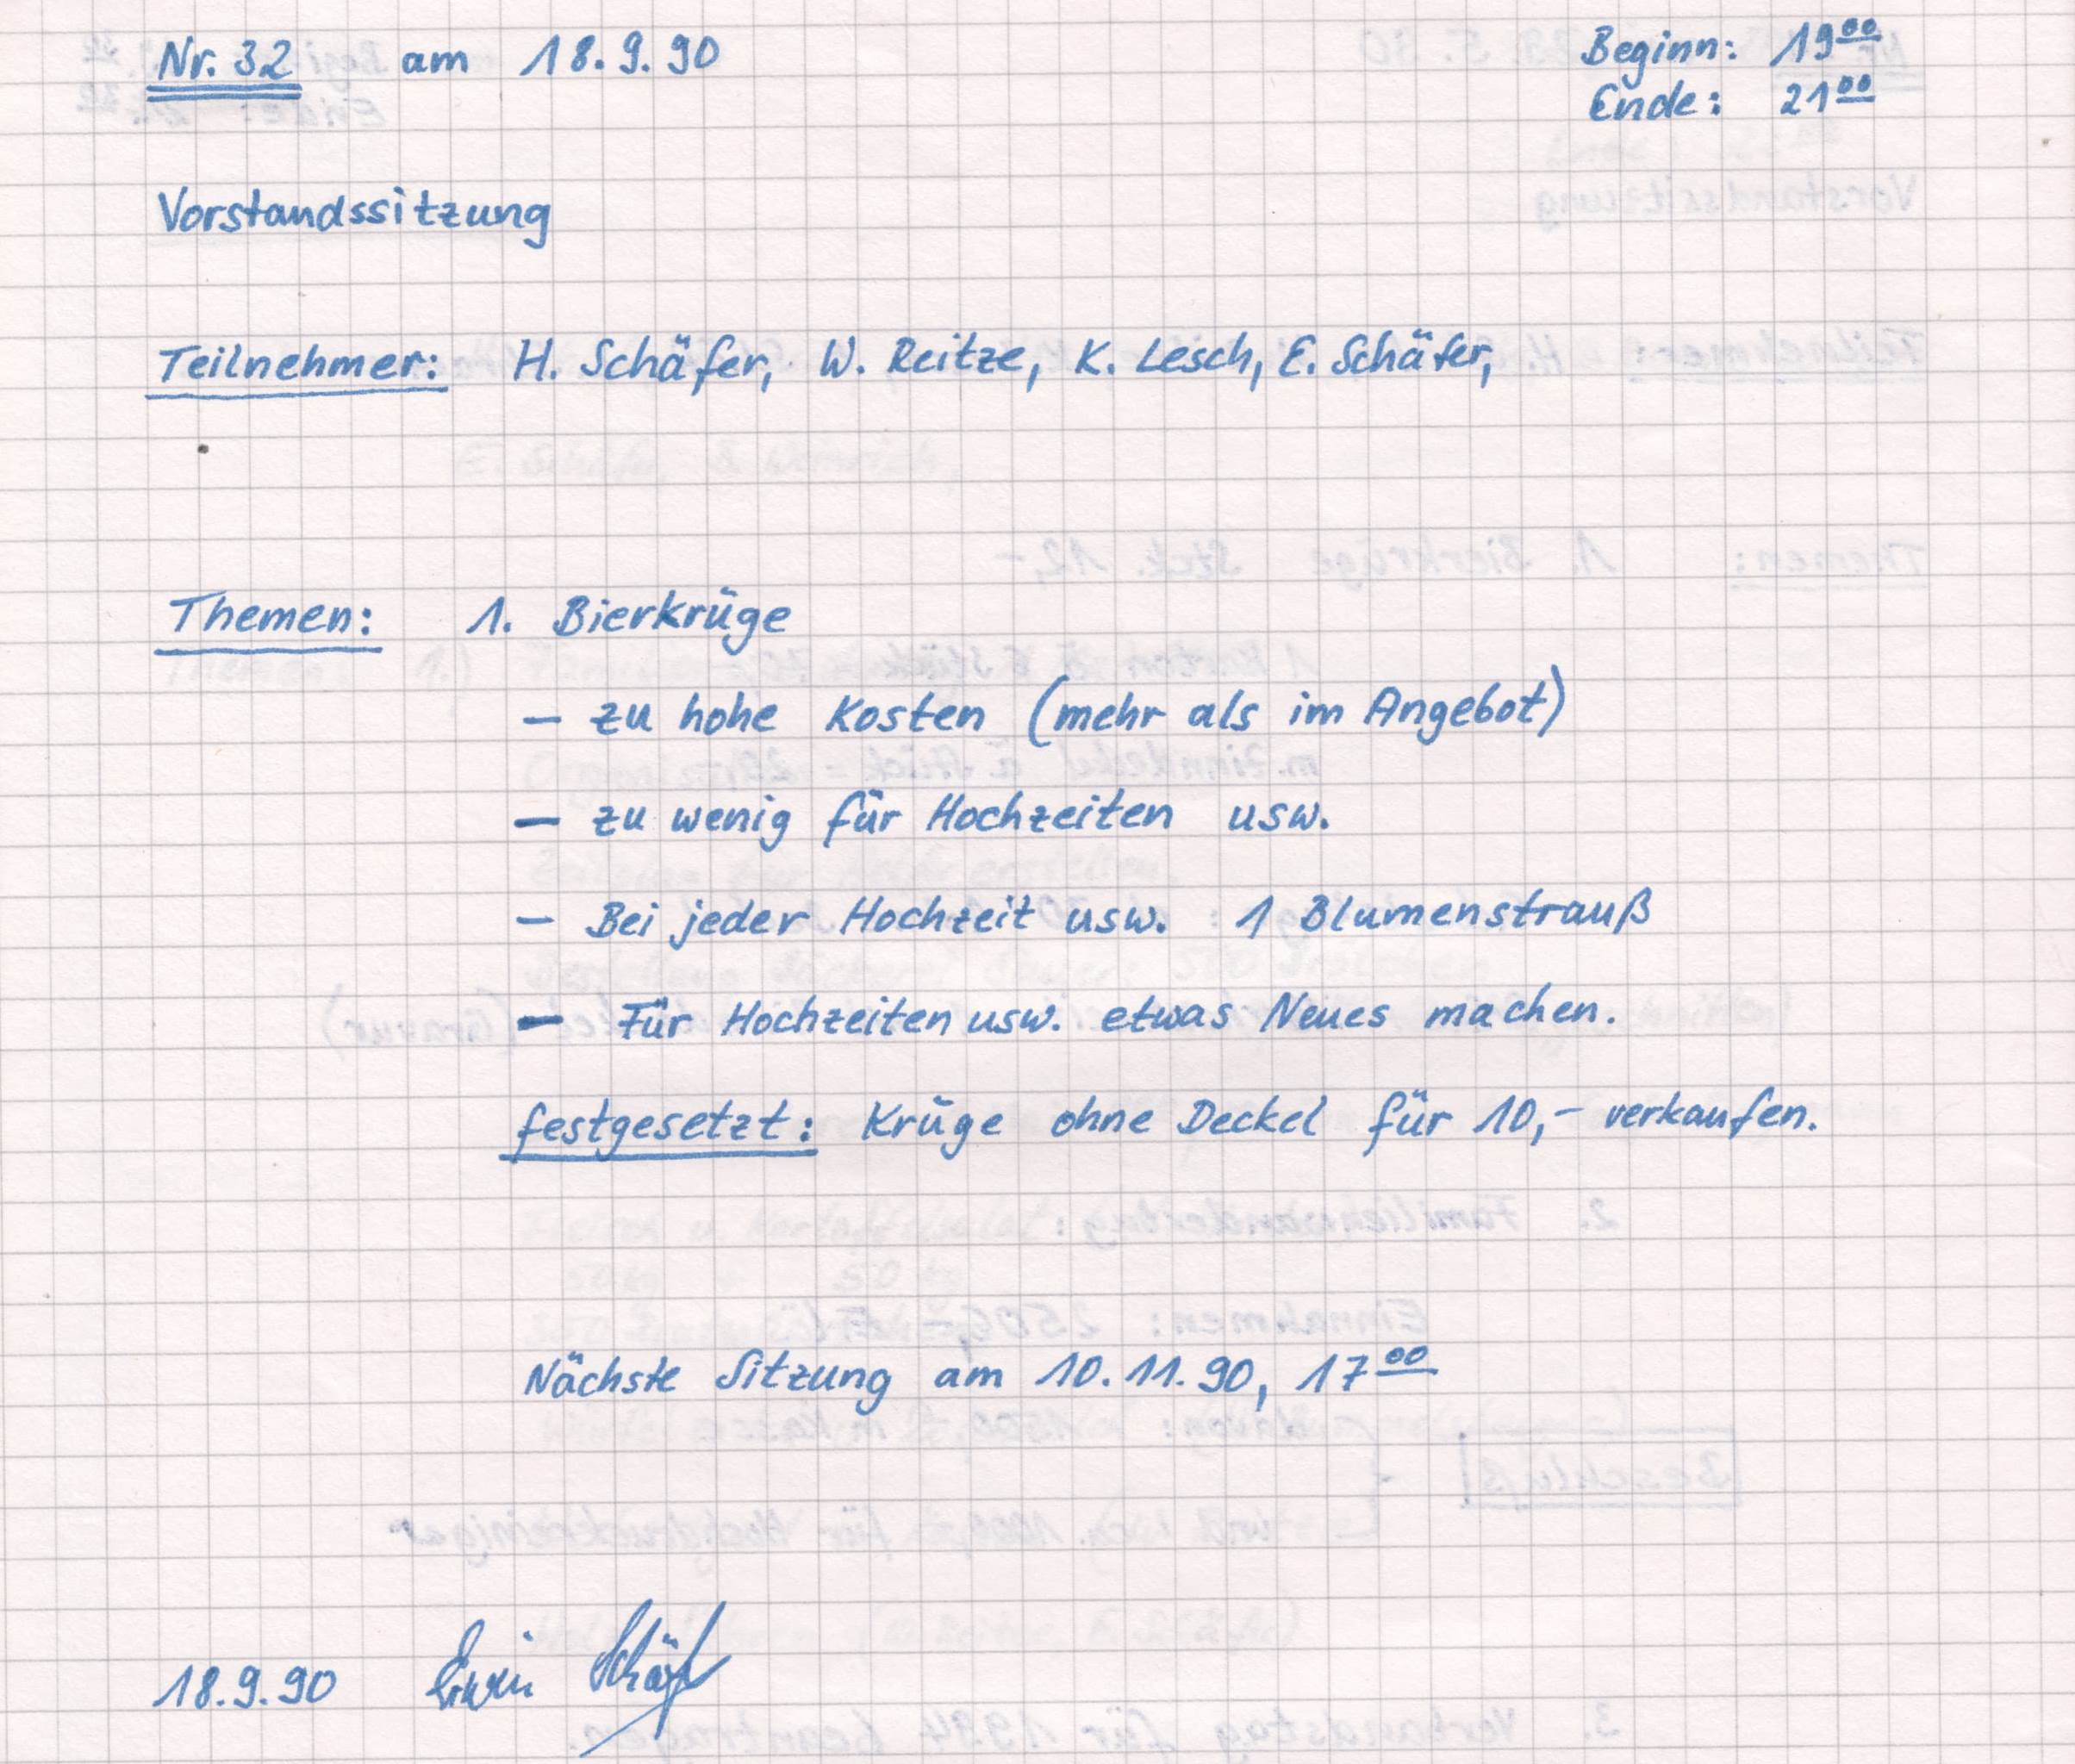 Nr. 32 am 18.9.90 Beginn: 19⁰⁰
Ende: 21⁰⁰
Vorstandssitzung
Teilnehmer: H. Schäfer, W. Reitze, K. Lesch, E. Schäfer,
Themen: 1. Bierkrüge
– zu hohe Kosten (mehr als im Angebot)
– zu wenig für Hochzeiten usw.
– Bei jeder Hochzeit usw. 1 Blumenstrauß
– Für Hochzeiten usw. etwas Neues machen.
festgesetzt: Krüge ohne Deckel für 10,– verkaufen.
Nächste Sitzung am 10.11.90, 17⁰⁰
18.9.90 Erwin Schäfer